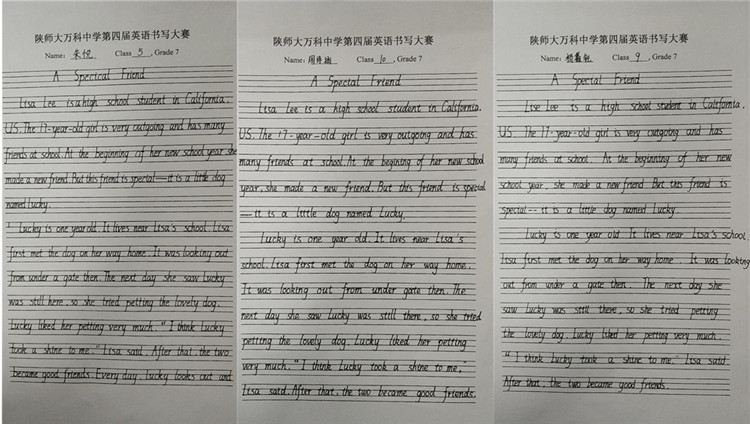 陕师大万科中学第四届英语书写大赛
Name: 朱悦 Class 5 , Grade 7
A Specical Friend
Lisa Lee is a high school student in California.
US. The 17-year-old girl is very outgoing and has many
friends at school. At the beginning of her new school year, she
made a new friend. But this friend is special—it is a little dog
named lucky.
Lucky is one year old. It lives near Lisa's school. Lisa
first met the dog on her way home. It was looking out
from under a gate then. The next day she saw Lucky
was still here, so she tried petting the lovely dog.
Lucky liked her petting very much. "I think Lucky
took a shine to me." Lisa said. After that, the two
became good friends. Every day, lucky looks out and
陕师大万科中学第四届英语书写大赛
Name: Class 10 , Grade 7
A Special Friend
Lisa Lee is a high school student in California.
US. The 17-year-old girl is very outgoing and has
many friends at school. At the begining of her new school
year, she made a new friend. But this friend is special
—it is a little dog named Lucky.
Lucky is one year old. It lives near Lisa's
school. Lisa first met the dog on her way home.
It was looking out from under a gate then. The
next day she saw Lucky was still there, so she tried
petting the lovely dog. Lucky liked her petting
very much. "I think Lucky took a shine to me."
Lisa said. After that, the two became good friends.
陕师大万科中学第四届英语书写大赛
Name: Class 9 , Grade 7
A Special Friend
Lise Lee is a high school student in California,
US. The 17-year-old girl is very outgoing and has
many friends at school. At the beginning of her new
school year, she made a new friend. But this friend is
special--it is a little dog named Lucky.
Lucky is one year old. It lives near Lisa's school.
Lisa first met the dog on her way home. It was looking
out from under a gate then. The next day she
saw Lucky was still there, so she tried petting
the lovely dog. Lucky liked her petting very much.
"I think Lucky took a shine to me." Lisa said.
After that, the two became good friends.